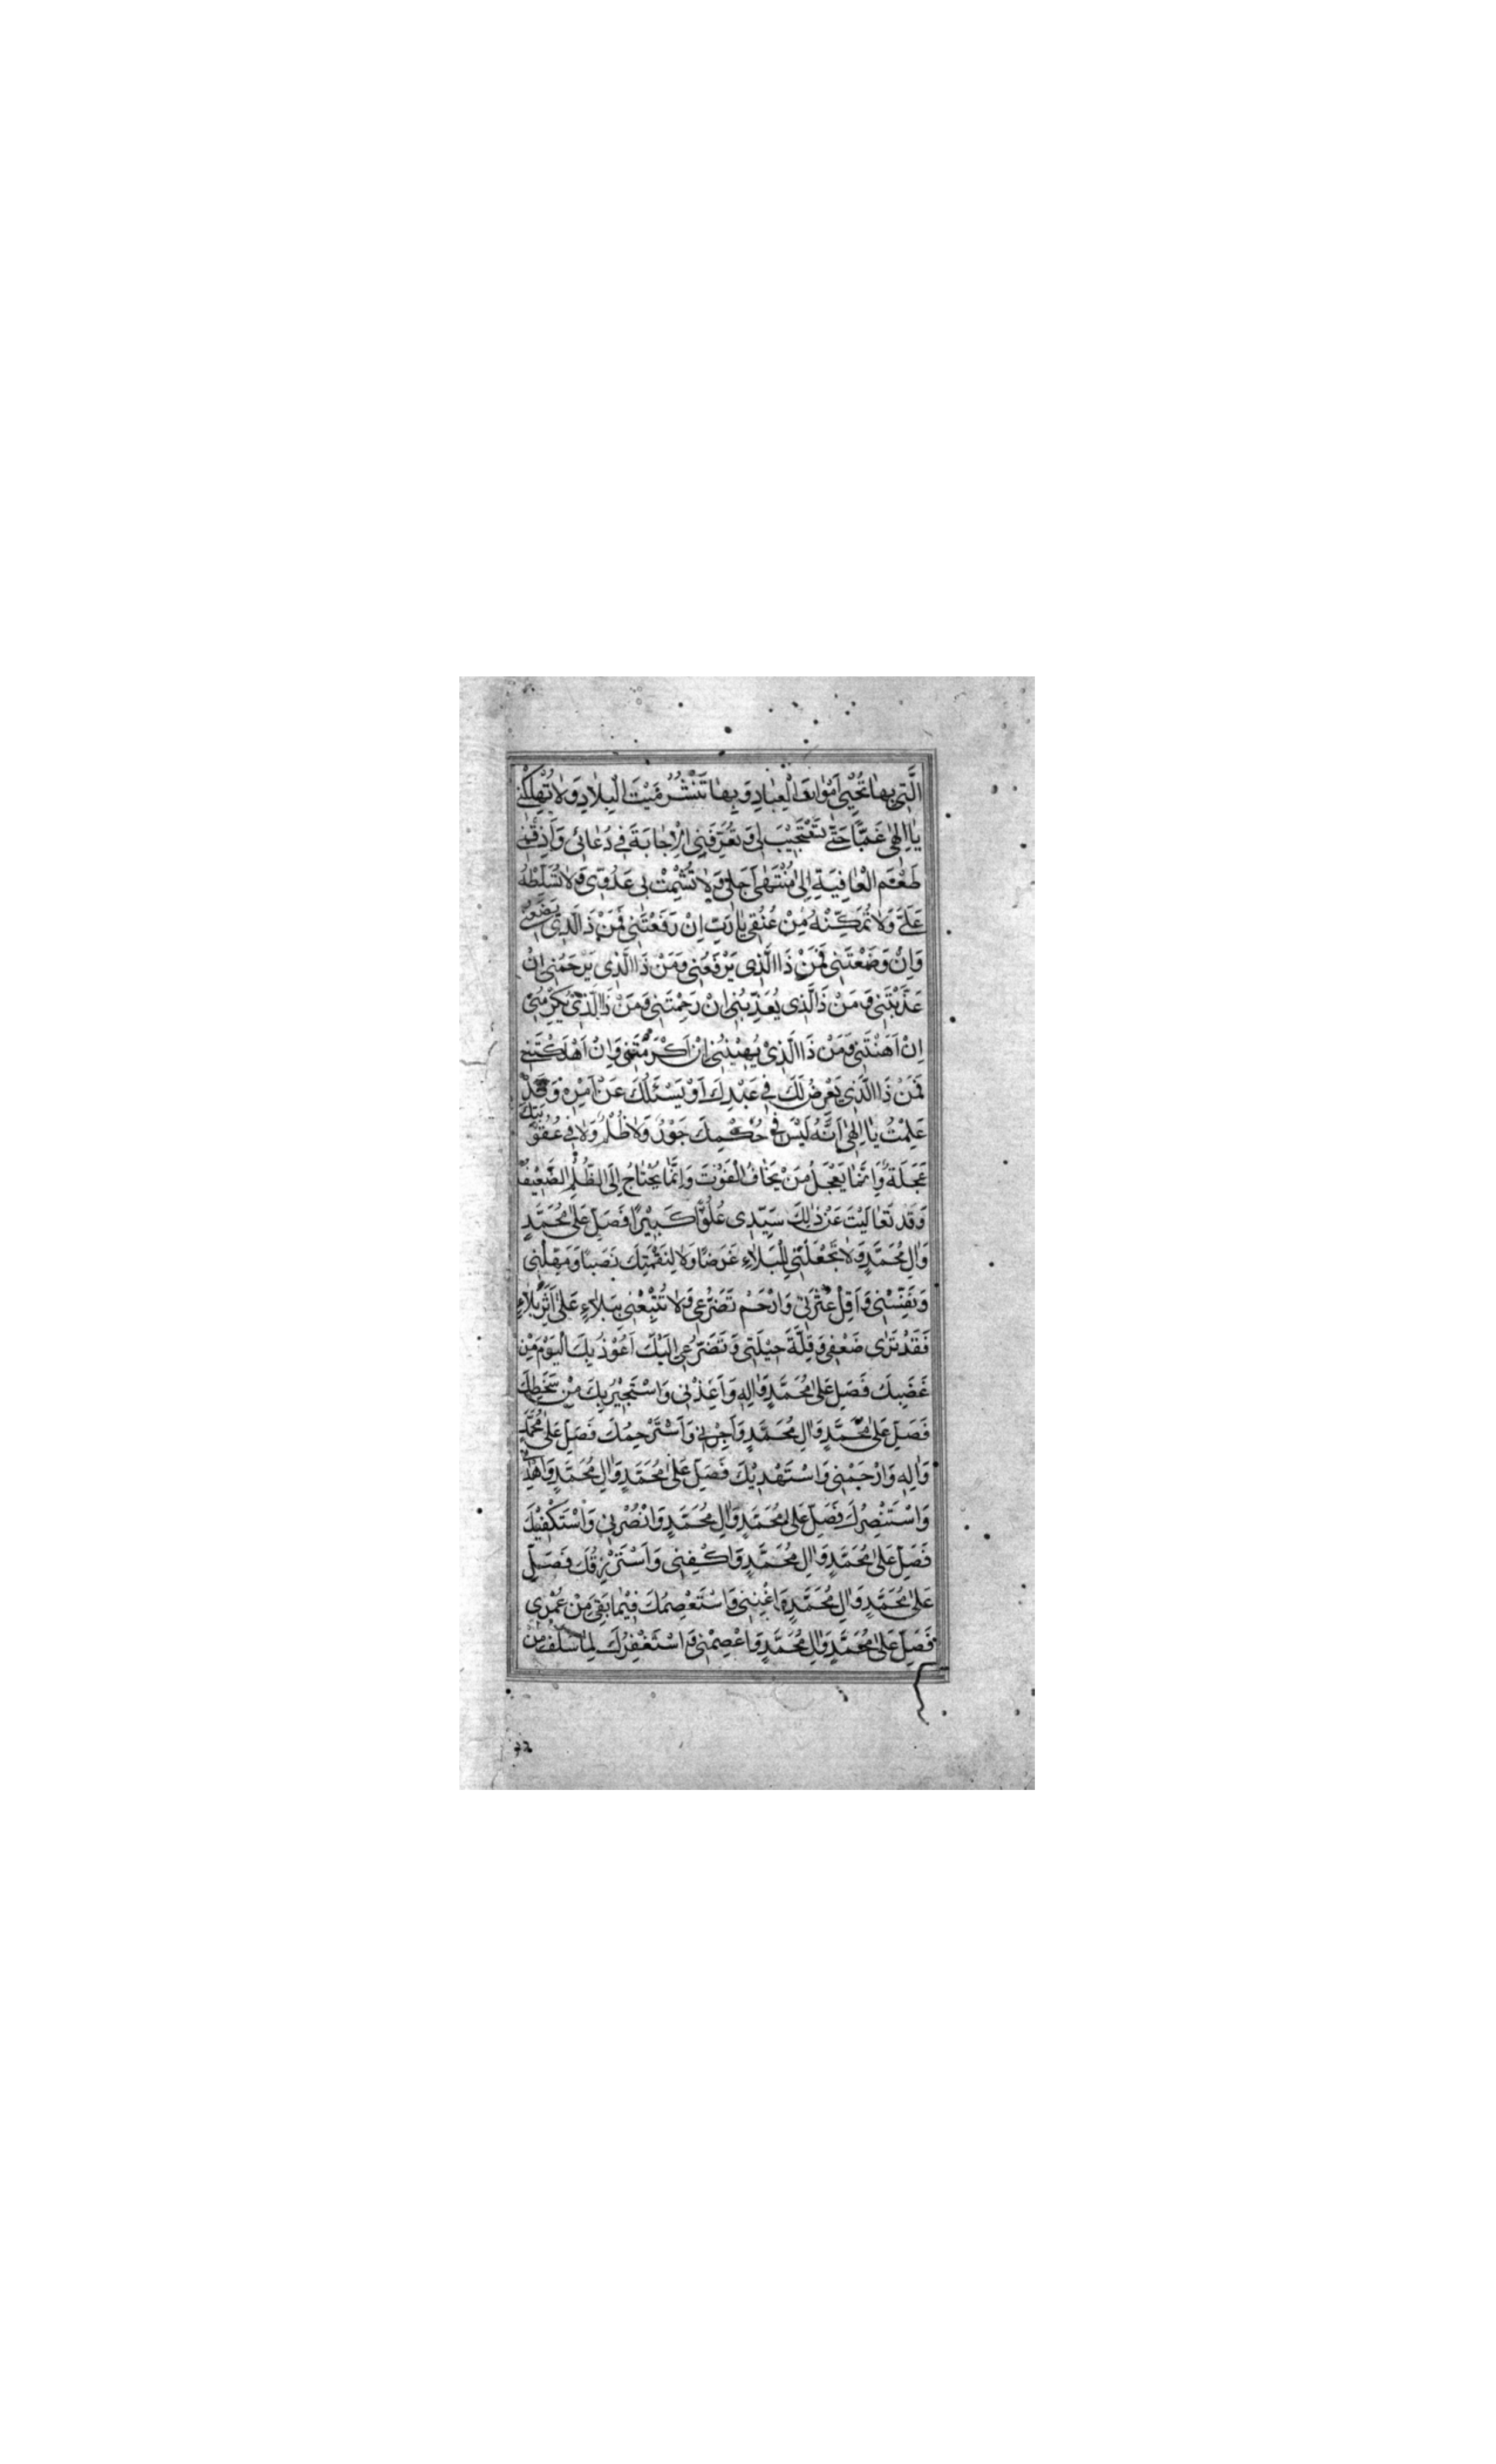 الَّتِي بِهَا تُحْيِي اَمْوَاتَ الْعِبَادِ وَبِهَا تَنْشُرُ مَيْتَ الْبِلَادِ وَلَا تُهْلِكْنِي
يَا اِلٰهِي غَمًّا حَتّٰى تَسْتَجِيْبَ لِي وَتُعَرِّفَنِي الْاِجَابَةَ فِي دُعَائِي وَاَذِقْنِي
طَعْمَ الْعَافِيَةِ اِلٰى مُنْتَهٰى اَجَلِي وَلَا تُشْمِتْ بِي عَدُوِّي وَلَا تُسَلِّطْهُ
عَلَيَّ وَلَا تُمَكِّنْهُ مِنْ عُنُقِي يَا رَبِّ اِنْ رَفَعْتَنِي فَمَنْ ذَا الَّذِي يَضَعُنِي
وَاِنْ وَضَعْتَنِي فَمَنْ ذَا الَّذِي يَرْفَعُنِي وَمَنْ ذَا الَّذِي يَرْحَمُنِي اِنْ
عَذَّبْتَنِي وَمَنْ ذَا لَّذِي يُعَذِّبُنِي اِنْ رَحِمْتَنِي وَمَنْ ذَا الَّذِي يُكْرِمُنِي
اِنْ اَهَنْتَنِي وَمَنْ ذَا الَّذِيْ يُهِيْنُنِي اِنْ اَكْرَمْتَنِي وَاِنْ اَهْلَكْتَنِي
فَمَنْ ذَا الَّذِي يَعْرِضُ لَكَ فِي عَبْدِكَ اَوْ يَسْئَلُكَ عَنْ اَمْرِهِ وَقَدْ
عَلِمْتُ يَا اِلٰهِي اَنَّهُ لَيْسَ فِي حُكْمِكَ جَوْرٌ وَلَا ظُلْمٌ وَلَا فِي عُقُوبَتِكَ
عَجَلَةٌ وَاِنَّمَا يَعْجَلُ مَنْ يَخَافُ الْفَوْتَ وَاِنَّمَا يَحْتَاجُ اِلَى الظُّلْمِ الضَّعِيْفُ
وَقَدْ تَعَالَيْتَ عَنْ ذٰلِكَ سَيِّدِي عُلُوًّا كَبِيْرًا فَصَلِّ عَلٰى مُحَمَّدٍ
وَاٰلِ مُحَمَّدٍ وَلَا تَجْعَلْنِي لِلْبَلَاءِ غَرَضًا وَلَا لِنَقْمَتِكَ نَصَبًا وَمَهِّلْنِي
وَنَفِّسْنِي وَاَقِلْ عَثْرَتِي وَارْحَمْ تَضَرُّعِي وَلَا تُتْبِعْنِي بِبَلَاءٍ عَلٰى اَثَرِ بَلَاءٍ
فَقَدْ تَرٰى ضَعْفِي وَقِلَّةَ حِيْلَتِي وَتَضَرُّعِي اِلَيْكَ اَعُوْذُ بِكَ الْيَوْمَ مِنْ
غَضَبِكَ فَصَلِّ عَلٰى مُحَمَّدٍ وَاٰلِهِ وَاَعِذْنِي وَاَسْتَجِيْرُ بِكَ مِنْ سَخَطِكَ
فَصَلِّ عَلٰى مُحَمَّدٍ وَاٰلِ مُحَمَّدٍ وَاَجِرْنِي وَاَسْتَرْحِمُكَ فَصَلِّ عَلٰى مُحَمَّدٍ
وَاٰلِهِ وَارْحَمْنِي وَاَسْتَهْدِيْكَ فَصَلِّ عَلٰى مُحَمَّدٍ وَاٰلِ مُحَمَّدٍ وَاهْدِنِي
وَاَسْتَنْصِرُكَ فَصَلِّ عَلٰى مُحَمَّدٍ وَاٰلِ مُحَمَّدٍ وَانْصُرْنِي وَاَسْتَكْفِيْكَ
فَصَلِّ عَلٰى مُحَمَّدٍ وَاٰلِ مُحَمَّدٍ وَاكْفِنِي وَاَسْتَرْزِقُكَ فَصَلِّ
عَلٰى مُحَمَّدٍ وَاٰلِ مُحَمَّدٍ وَاَغْنِنِي وَاَسْتَعْصِمُكَ فِيْمَا بَقِيَ مِنْ عُمْرِي
فَصَلِّ عَلٰى مُحَمَّدٍ وَاٰلِ مُحَمَّدٍ وَاعْصِمْنِي وَاَسْتَغْفِرُكَ لِمَا سَلَفَ مِنْ